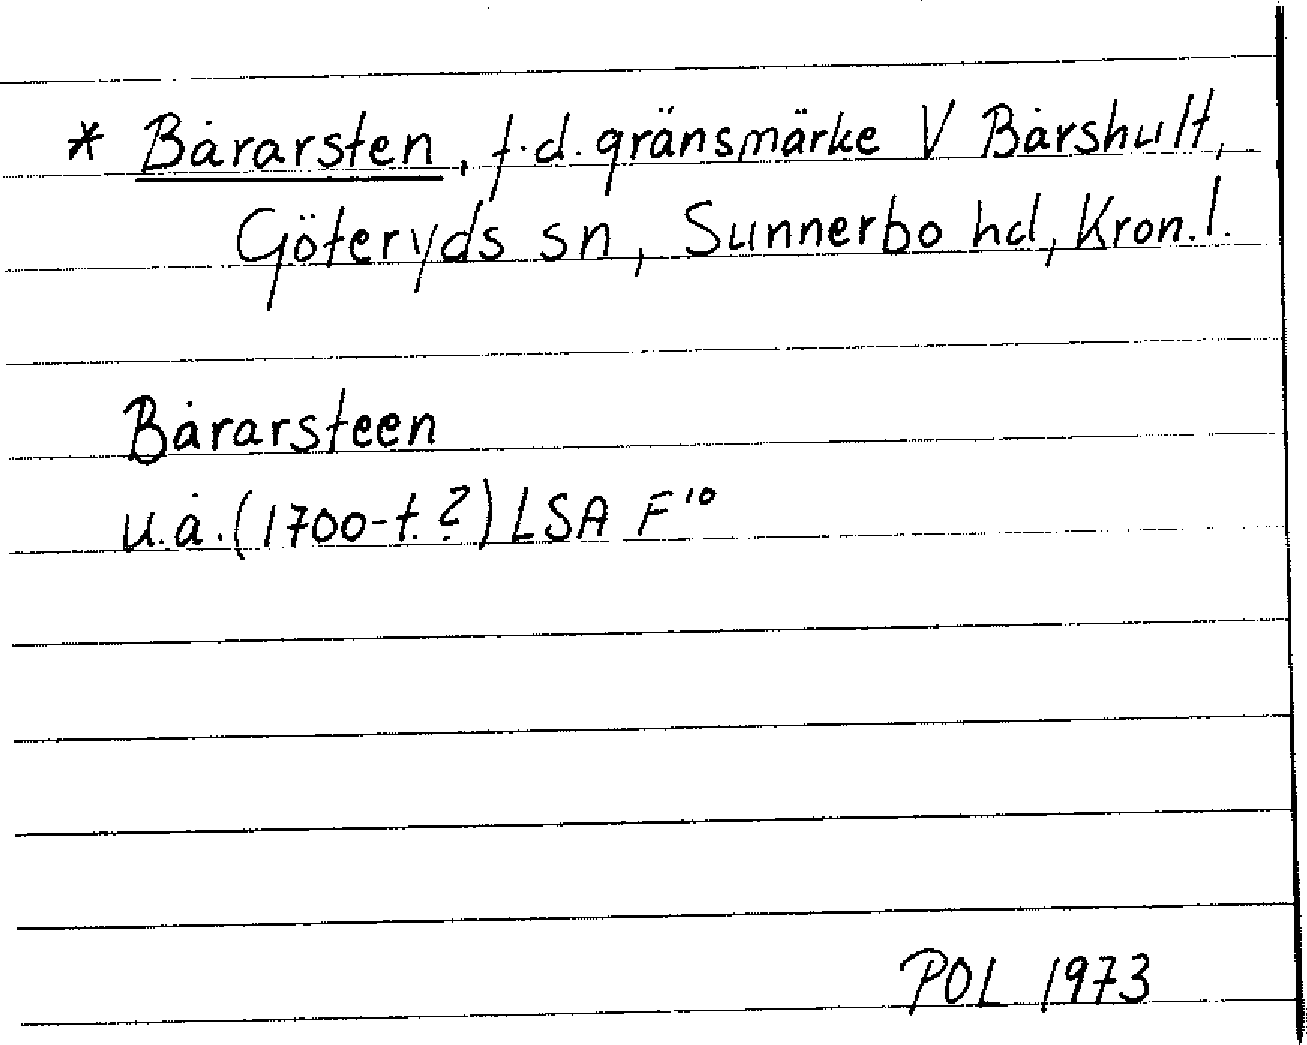 * Bårarsten, f.d. gränsmärke V Bårshult,
Göteryds sn, Sunnerbo hd, Kron.l.
Bårarsteen
u.å. (1700-t.?) LSA F¹⁰
POL 1973